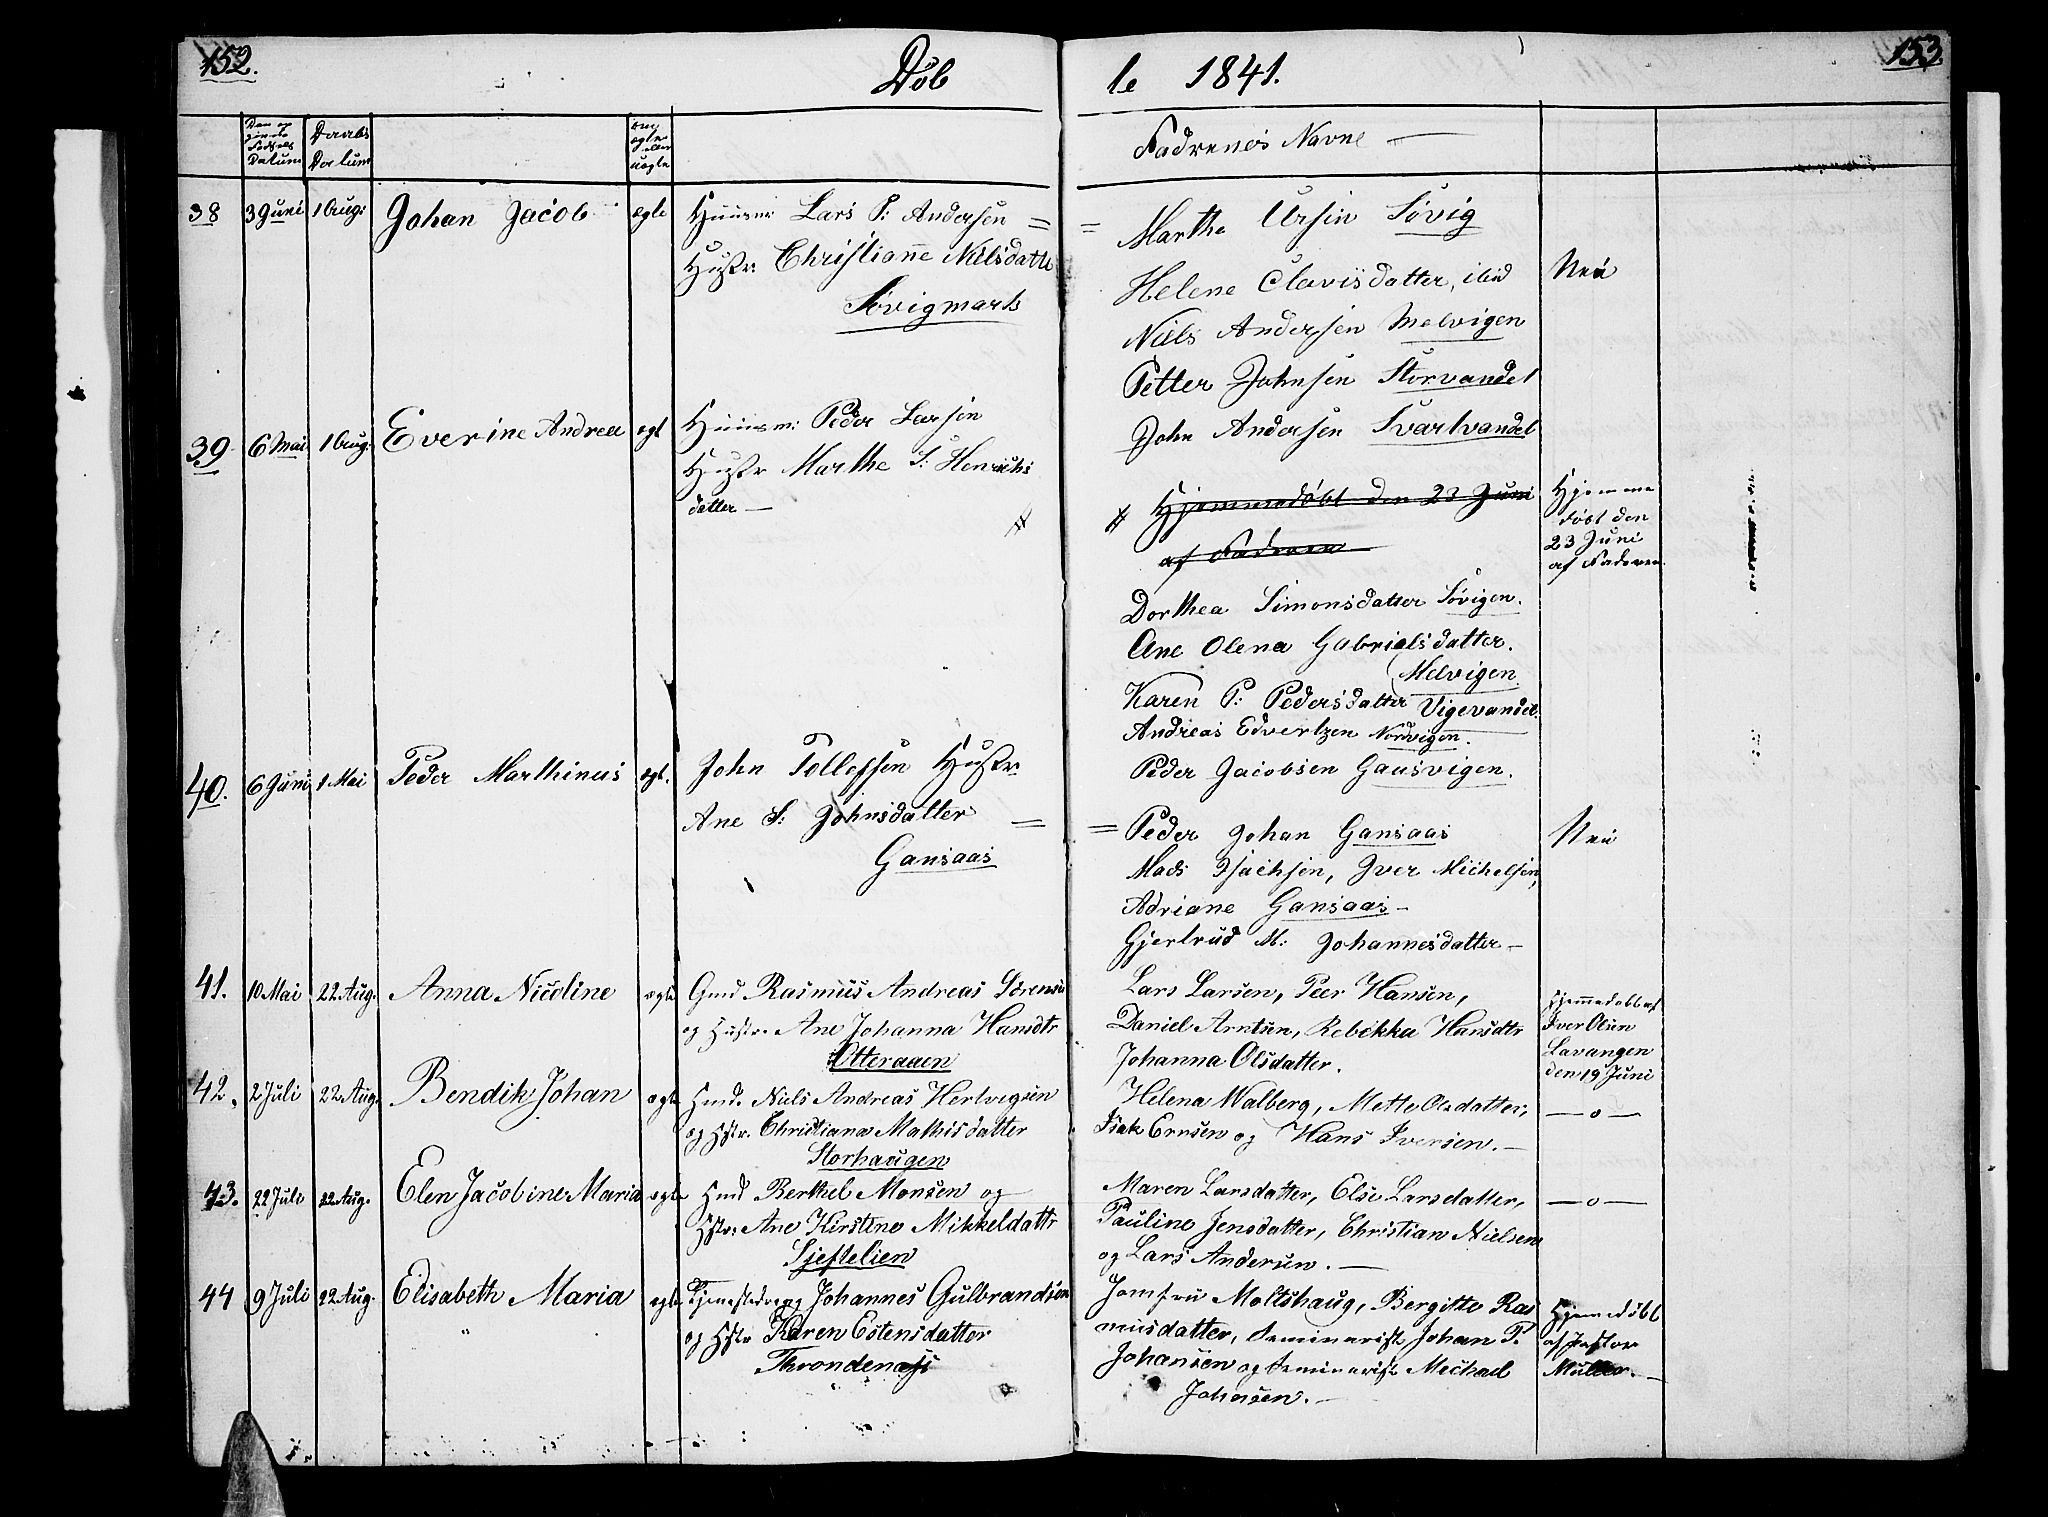 152.
Döb
le 1841.
153.
Datum
Daabs
Datum
ægte
eller
uægte
Fadrenes Navne
38
3 Juni
1 Aug:
Johan Jacob
ægte
Huusm: Lars P: Andersen =
Hustr: Christianne Nilsdatte
Sövigmark
= Marthe Ursin Sövig
Helene Clavisdatter, ibid
Niels Andersen Melvigen
Petter Johnsen Storvandet
John Andersen Svartvandet
Nei
39
6 Mai
1 Aug:
Everine Andrea
ægt
Huusm: Peder Larsen
Hustr Marthe S: Henrichs
datter —
#
# Hjemmedöbt den 23 Juni
af Faderen
Dorthea Simonsdatter Sövigen.
Ane Olena Gabrielsdatter.
Melvigen
Karen P: Pedersdatter Vigevandet.
Andreas Edvertzen Nordvigen.
Peder Jacobsen Gausvigen.
Hjemme
döbt den
23 Juni
af Faderen
40.
6 Juni
1 Mai
Peder Marthinus
ægt.
John Tollefsen Hustr:
Ane S: Johnsdatter =
Gansaas
= Peder Johan Gansaas
Mads Isachsen, Iver Michelsen,
Adriane Gansaas —
Gjertrud M: Johannesdatter —
Nei
41.
10 Mai
22 Aug.
Anna Nicoline
ægte
Gmd Rasmus Andreas Sörensen
og Hustr. Ane Johanna Hansdtr
Otteraaen
Lars Larsen, Peer Hansen,
Daniel Arntsen, Rebekka Hansdtr
Johanna Olsdatter.
Hjemmedöbt af
Iver Olsen
Lavangen
den 19 Juni
42.
2 Juli
22 Aug.
Bendik Johan
ægte
Hmd. Niels Andreas Hertvigsen
og Hstr. Christiana Mathisdatter
Storhaugen
Helena Walberg, Mette Olsdatter,
Isak Ernsen og Hans Iversen. —
— o —
43.
22 Juli
22 Aug.
Elen Jacobine Maria
ægte
Hmd Berthel Monsen og
Hstr: Ane Kirstine Mikkeldattr
Sjeftelien
Maren Larsdatter, Else Larsdatter,
Pauline Jensdatter, Christian Nielsen
og Lars Andersen. —
— o —
44
9 Juli
22 Aug.
Elisabeth Maria
ægte
Tjenestedreng Johannes Gulbrandsen
og Hstr Karen Estensdatter
Throndenæs
Jomfru Moltzhaug, Bergitte Ras
musdatter, Seminarist Johan P.
Johansen og Seminarist Michael
Johnsen. —
Hjemedöbt
af Pastor
Müller. —